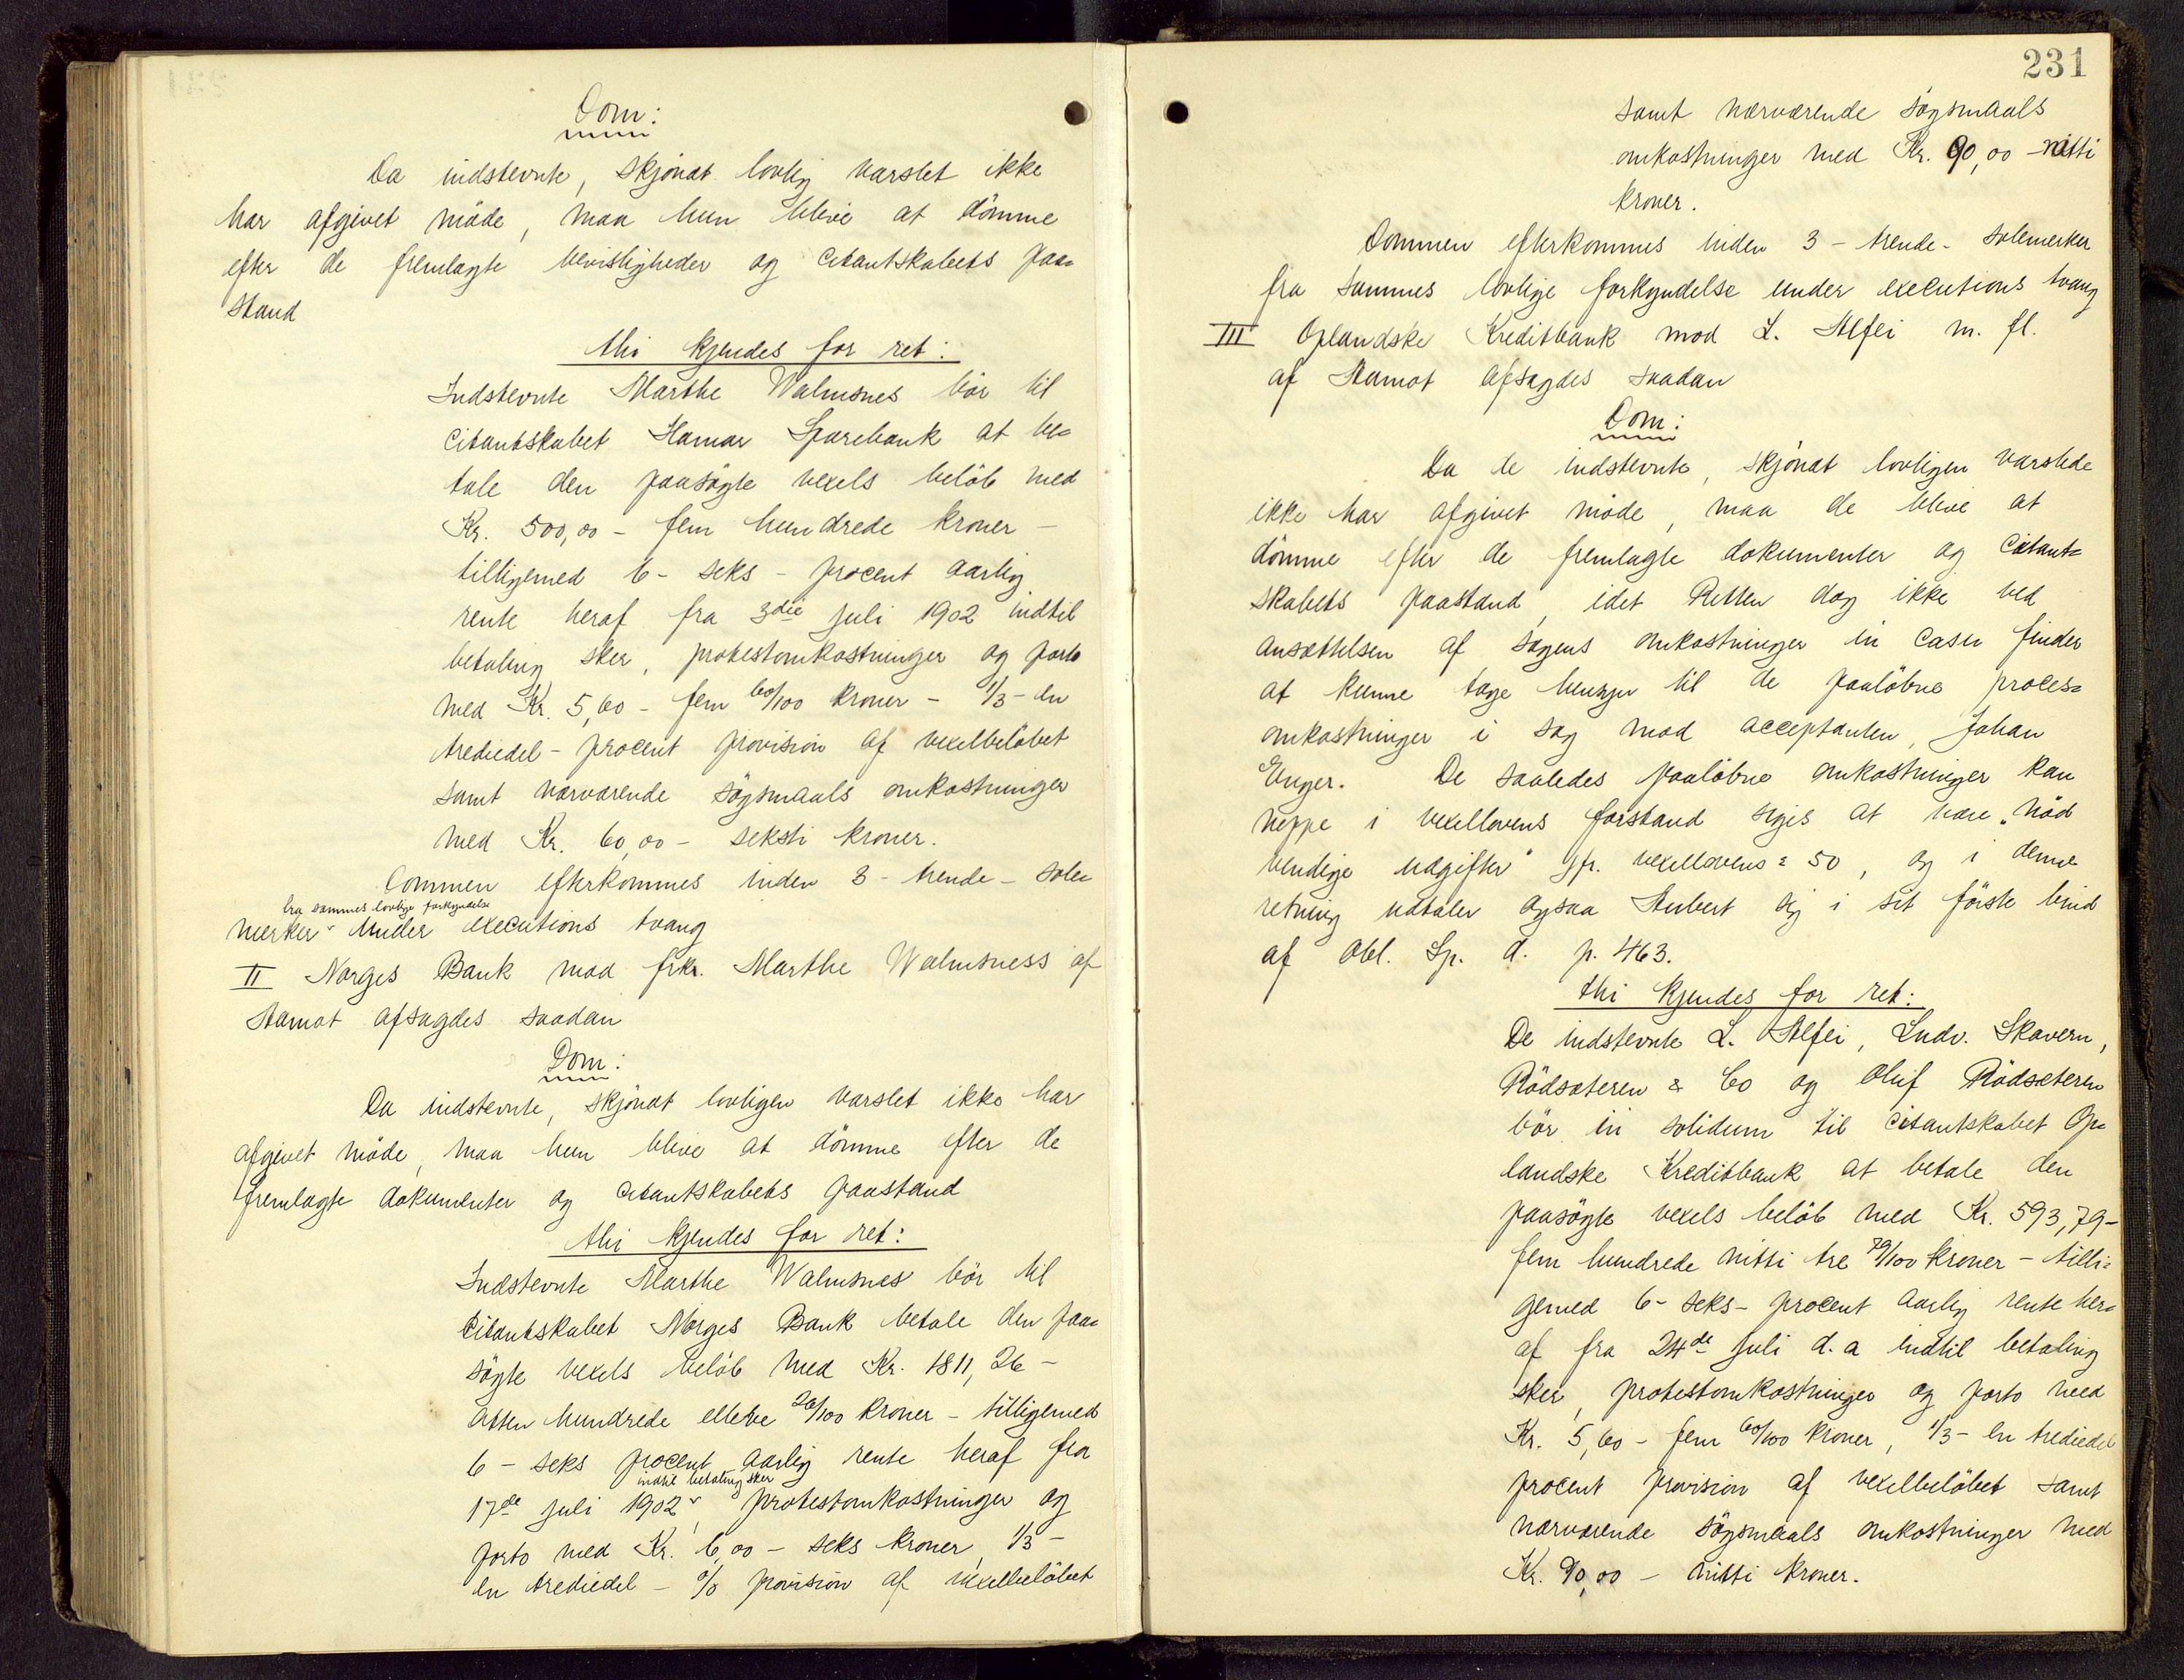 Dom:
Da indstevnte, skjønt lovlig varslet ikke
har afgivet møde, maa hun blive at dømme
efter de fremlagte bevisligheder og citantskabets paa-
stand
thi kjendes for ret:
Indstevnte Marthe Walmsnes bør til
citantskabet Hamar Sparebank at be-
tale den paasøgte vexels beløb med
Kr. 500,00 - fem hundrede kroner -
tilligemed 6 - seks - procent aarlig
rente heraf fra 3die juli 1902 indtil
betaling sker, protestomkostninger og porto
med Kr. 5,60 - fem 60/100 kroner - 1/3 - en
trediedel - procent provision af vexelbeløbet
samt nærværende søgsmaals omkostninger
med Kr. 60,00 - seksti kroner.
Dommen efterkommes inden 3 - trende - sole-
fra sammes lovlige forkyndelse
merker under executions tvang
II Norges Bank mod frk. Marthe Walmsness af
Aamot afsagdes saadan
Dom:
Da indstevnte, skjønt lovligen varslet ikke har
afgivet møde, maa hun blive at dømme efter de
fremlagte dokumenter og citantskabets paastand
thi kjendes for ret:
Indstevnte Marthe Walmsnes bør til
Citantskabet Norges Bank betale den paa-
søgte vexels beløb med Kr. 1811,26 -
atten hundrede elleve 26/100 kroner - tilligemed
6 - seks procent aarlig rente heraf fra
indtil betaling sker
17de juli 1902, protestomkostninger og
porto med Kr. 6,00 - seks kroner, 1/3 -
en trediedel - % provision af vexelbeløbet
231
samt nærværende søgsmaals
omkostninger med Kr. 90,00 - nitti
kroner.
Dommen efterkommes inden 3 - trende - solemerker
fra sammes lovlige forkyndelse under executions tvang
III Oplandske Kreditbank mod L. Alfei m. fl.
af Aamot afsagdes saadan
Dom:
Da de indstevnte, skjønt lovligen varslede
ikke har afgivet møde, maa de blive at
dømme efter de fremlagte dokumenter og citant-
skabets paastand, idet Retten dog ikke ved
ansættelsen af sagens omkostninger in casu finder
at kunne tage hensyn til de paaløbne proces-
omkostninger i sag mod acceptanten, Johan
Enger. De saaledes paaløbne omkostninger kan
neppe i vexellovens forstand siges at være "nød
vendige udgifter" jfr. vexellovens § 50, og i denne
retning udtaler ogsaa Aubert sig i sit første bind
af Obl. Sp. d. p. 463.
thi kjendes for ret:
De indstevnte L. Alfei, Ludv. Skavern,
Rødsæteren & Co og Oluf Rødsæteren
bør in solidum til citantskabet Op-
landske Kreditbank at betale den
paasøgte vexels beløb med Kr. 593,79 -
fem hundrede nitti tre 79/100 kroner - tilli-
gemed 6 - seks - procent aarlig rente her-
af fra 24de juli d.a indtil betaling
sker, protestomkostninger og porto med
Kr. 5,60 - fem 60/100 kroner, 1/3 - en trediedel
procent provision af vexelbeløbet samt
nærværende søgsmaals omkostninger med
Kr. 90,00 - nitti kroner.